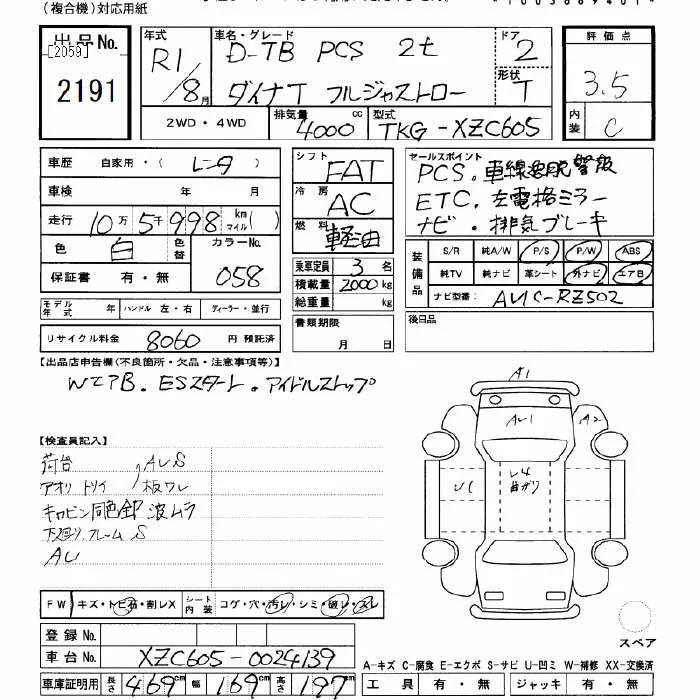 (複合機)対応用紙
出品No.
[2059]
2191
年式 R1/8月
車名・グレード D-TB PCS 2t
ダイナT フルジャストロー
ドア 2
形状 T
評価点 3.5
内装 C
2WD・4WD
排気量 4000 cc
型式 TKG-XZC605
車歴 自家用・(レンタ)
車検 年 月
走行 10万5千998 km/マイル( )
色 白 色替 カラーNo. 058
保証書 有・無
シフト FAT
冷房 AC
燃料 軽油
乗車定員 3 名
積載量 2000 kg
総重量 kg
セールスポイント
PCS.車線逸脱警報
ETC.左電格ミラー
ナビ・排気ブレーキ
装備品 S/R 純A/W P/S P/W ABS
純TV 純ナビ 革シート 外ナビ エアB
ナビ型番: AVIC-RZ502
モデル年式 年 ハンドル 左・右 ディーラー・並行
リサイクル料金 8060 円 預託済
書類期限 月 日
後日品
【出品店申告欄(不良箇所・欠品・注意事項等)】
WエアB.ESスタート.アイドルストップ
【検査員記入】
荷台
アオリ トリイ
AUS
板ワレ
キャビン同色全塗 波ムラ
下廻り.フレームS
AU
A1
AU1
A2
U1
L4
曲がり
FW キズ・トビ石・割レX シート内装 コゲ・穴・汚レ・シミ・破レ・スレ
登録No.
車台No. XZC605-0024139
車庫証明用 長さ 469cm 幅 169cm 高さ 197cm
スペア
A-キズ C-腐食 E-エクボ S-サビ U-凹ミ W-補修 XX-交換済
工具 有・無 ジャッキ 有・無